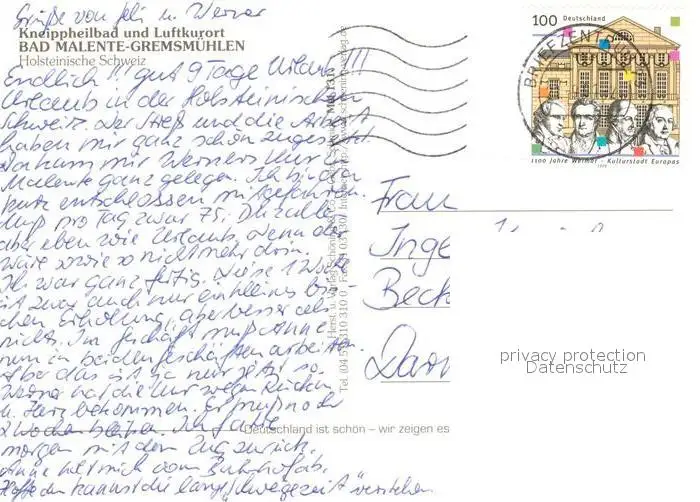 Grüße von Feli u. Werner
Kneippheilbad und Luftkurort
BAD MALENTE-GREMSMÜHLEN
Holsteinische Schweiz
Endlich !!! gut 9 Tage Urlaub !!!
Urlaub in der Holsteinischen
Schweiz. Der Streß und die Arbeit
haben mir ganz schön zugesetzt.
Da kam mir Werners Kur in
Malente ganz gelegen. Ich bin dann
kurz entschlossen mitgefahren.
Muß pro Tag zwar 75,- DM zahlen
aber eben wie Urlaub, wenn der
wäre sowieso nicht mehr drin.
Ich war ganz fertig. Diese 1 Woche
ist zwar auch nur ein kleines biß-
chen Erholung, aber besser als
nichts. Im Geschäft muß Anne
nun in beiden Geschäften arbeiten.
Aber das ist ja nur jetzt so.
Werner hat die Kur wegen Rücken
u. Herz bekommen. Er muß noch
2 Wochen bleiben. Ich fahre
morgen mit dem Zug zurück.
Anne holt mich vom Bahnhof ab.
Hoffe du kannst die lange "Schweigezeit" verstehen.
100 Deutschland
BRIEFZENTRUM
1100 Jahre Weimar - Kulturstadt Europas
1999
Frau
Inge
Beck
Darm
privacy protection
Datenschutz
Deutschland ist schön – wir zeigen es